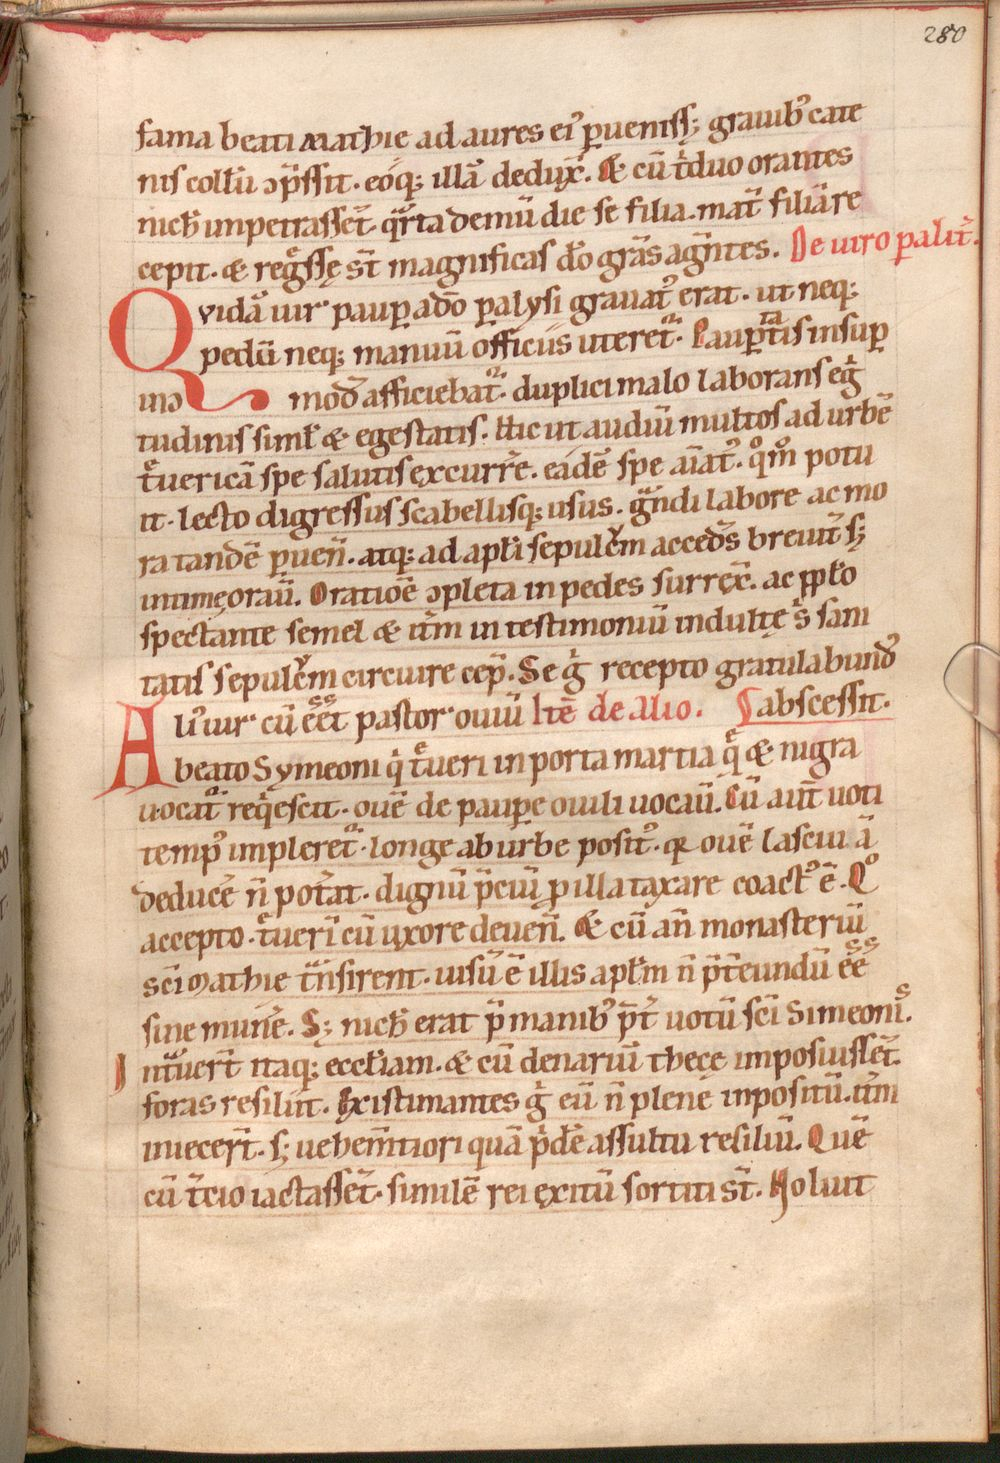 280
fama beati mathie ad aures ei᾿ p̲ueniss&#59; grauib᾿ cate
nis collū ↄp̄ssit. eoq; illā dedux̄. & cū t͛duo orantes
nich̄ impetrassēt. q̄rta demū die se filia. mat̄ filiā re
cepit. & reg̊ssę st̄ magnificas dō grās agn̄tes. De uiro p̲alit͛.
Qvidā uir paup̲ adō p̲alysi grauat᾿ erat. ut neq;
pedū neq; manuū officiis uteret᷑. Paup̲tatis insup̲
inↄ mod̄ afficiebat᷑. duplici malo laborans eg͛
tudinis simł & egestatis. Hic ut audiū multos ad urbē
t͛uericā spe salutis excurre᷑. eadē spe aīat᾿. qͦmͦ potu
it. lecto digressus scabellisq; usus. gͣndi labore ac mo
ra tandē p̲ueñ. atq; ad apłi sepulc͛m acced̄s breuit̄ s;
intimę oraū. Oratioē ↄpleta in pedes surrex̄. ac pp̲ło
spectante semel & itm̄ in testimoniū indultę s͛ sani
tatis sepulc͛m circuire cep̄. Se g͛ recepto gratulabund᾿
Ali᾿ uir cū eēt pastor ouiū Itē de alio. abscessit.
beato Symeoni q͛ t͛ueri in porta martia q̄ & nigra
uocat᷑ req͛escit. ouē de paup̲e ouili uocaū. Cū aut̄ uoti
temp᾿ impleret᷑. longe ab urbe posit᾿. q̲ ouē lasciuiā
deduce᷑ n̄ pot͛at. dignū p̄ciū p̲ illa taxare coact᾿ ē. Qͦ
accepto. t͛uerī cū uxore deueñ. & cū an̄ monasteriū
sc̄i mathie tͣnsirent. uisū ē illis apłm n̄ p̄t͛eundū eē
sine mune᷑. S; nich̄ erat p̄ manib᾿ p̄t͛ uotū sc̄i Simeonis.
Intͣuert̄ itaq; ecclia̅m. & cū denariū thece imposuissēt.
foras resiliit. Existimantes g͛ eū n̄ plene inpositū. itm̄
iniecert̄. s; uehem̄tiori quā p͛dē assultu resiliū. Quē
cū t͛cio iactassēt. similē rei exitū sortiti st̄. Noluit